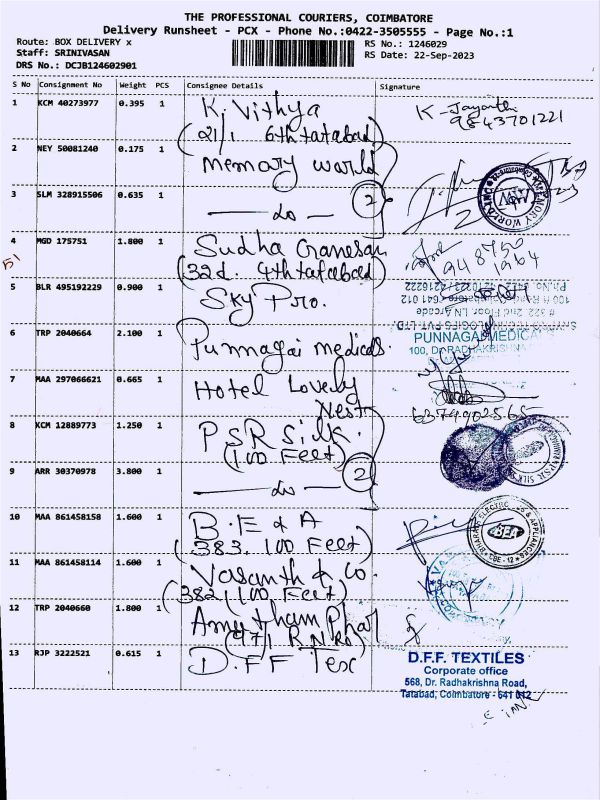 THE PROFESSIONAL COURIERS, COIMBATORE
Delivery Runsheet - PCX - Phone No.:0422-3505555 - Page No.:1
Route: BOX DELIVERY x
RS No.: 1246029
Staff: SRINIVASAN
RS Date: 22-Sep-2023
DRS No.: DCJB124602901
S No Consignment No Weight PCS Consignee Details Signature
1 KCM 40273977 0.395 1 K. Vithya
(21/1 6th tatabad)
K-Jayanthi
9843701221
2 NEY 50081240 0.175 1 memory world
3 SLM 328915506 0.635 1 — do — 2
MEMORY WORLD
4 MGD 175751 1.800 1 Sudha Ganesan
(32d. 4th tatabad)
948750
1964
51
5 BLR 495192229 0.900 1 Sky Pro.
# 322, 2nd Floor, LN Arcade
100 ft Road, Coimbatore - 641 012
Ph.No. 0422-4216222
6 TRP 2040664 2.100 1 Punnagai medicals.
PUNNAGAI MEDICAL
100, Dr. RADHAKRISHNA
7 MAA 297066621 0.665 1 Hotel Lovely
Nest
6374902565
8 KCM 12889773 1.250 1 PSR Silk.
(100 Feet)
9 ARR 30370978 3.800 1 — do — 2
10 MAA 861458158 1.600 1 B.E & A
(383, 100 Feet)
BHARAT ELECTRONICS & APPLIANCES
BEA
CBE-12
11 MAA 861458114 1.600 1 Vasanth & Co.
(382, 100 Feet)
12 TRP 2040660 1.800 1 Amutham Phar
13 RJP 3222521 0.615 1 D.F.F Tex
D.F.F. TEXTILES
Corporate office
568, Dr. Radhakrishna Road,
Tatabad, Coimbatore - 641 012